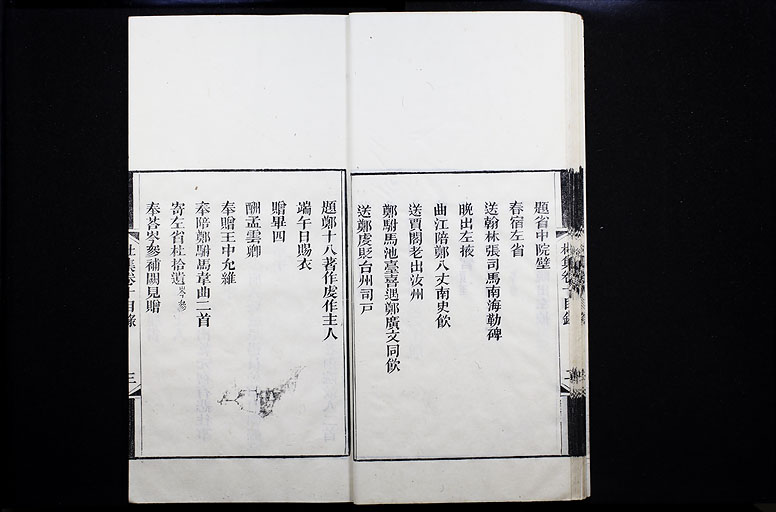 杜集卷十目錄
二
題省中院壁
春宿左省
送翰林張司馬南海勒碑
晚出左掖
曲江陪鄭八丈南史飲
送賈閣老出汝州
鄭駙馬池臺喜遇鄭廣文同飲
送鄭虔貶台州司戶
題鄭十八著作虔作主人
端午日賜衣
贈畢四
酬孟雲卿
奉贈王中允維
奉陪鄭駙馬韋曲二首
寄左省杜拾遺岑參
奉荅岑參補闕見贈
杜集卷十目錄
三